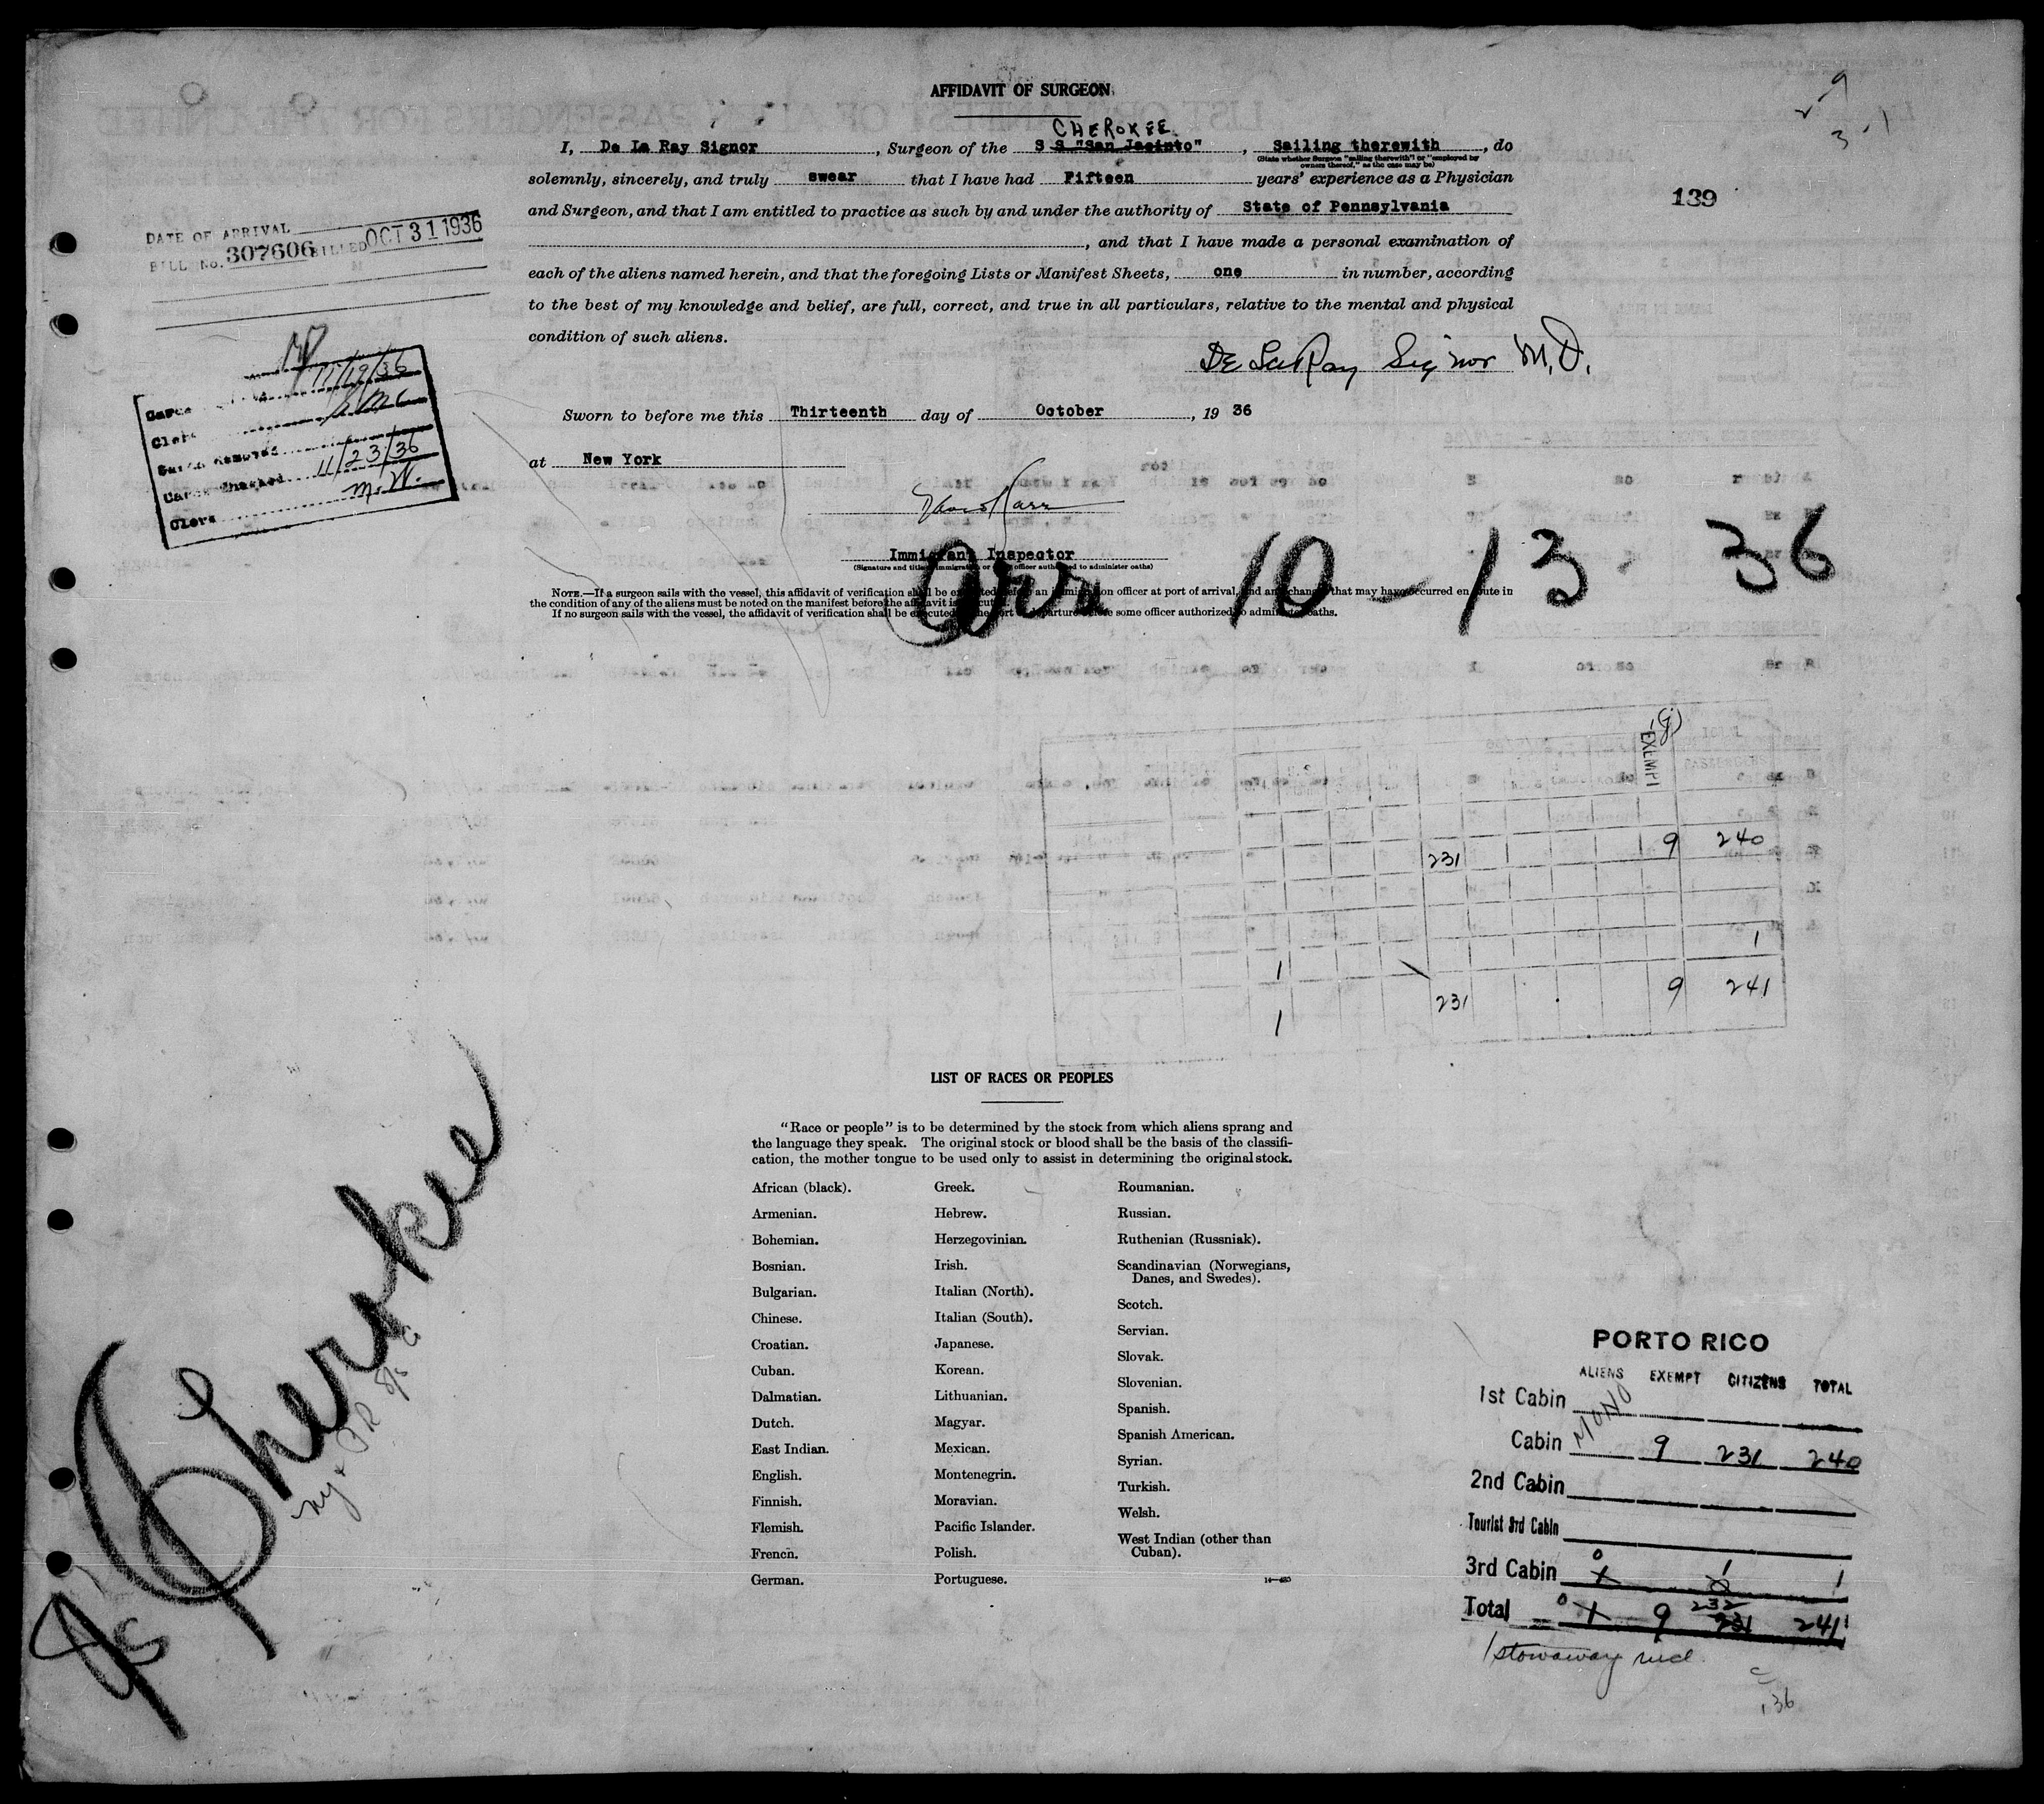 AFFIDAVIT OF SURGEON
CHEROKEE
I, De La Ray Signor, Surgeon of the S S "San Jacinto", Sailing therewith, do
(State whether Surgeon "sailing therewith" or "employed by
owners thereof," as the case may be)
solemnly, sincerely, and truly swear that I have had Fifteen years' experience as a Physician
and Surgeon, and that I am entitled to practice as such by and under the authority of State of Pennsylvania
, and that I have made a personal examination of
each of the aliens named herein, and that the foregoing Lists or Manifest Sheets, one in number, according
to the best of my knowledge and belief, are full, correct, and true in all particulars, relative to the mental and physical
condition of such aliens.
De La Ray Signor M.D.
Sworn to before me this Thirteenth day of October, 19 36
at New York
Immigrant Inspector
(Signature and title immigration or officer authorized to administer oaths)
NOTE.—If a surgeon sails with the vessel, this affidavit of verification shall be executed before an immigration officer at port of arrival, and any change that may have occurred en route in
the condition of any of the aliens must be noted on the manifest before the affidavit is executed.
If no surgeon sails with the vessel, the affidavit of verification shall be executed at the port of departure before some officer authorized to administer oaths.
Arr. 10-13-36
139
DATE OF ARRIVAL
BILL No. 307606 BILLED OCT 31 1936
11/19/36
Clerk
Cards Checked 11/23/36
Clerk M.W.
EXEMPT
231 9 240
1 1
231 9 241
1
LIST OF RACES OR PEOPLES
"Race or people" is to be determined by the stock from which aliens sprang and
the language they speak. The original stock or blood shall be the basis of the classifi-
cation, the mother tongue to be used only to assist in determining the original stock.
African (black).
Armenian.
Bohemian.
Bosnian.
Bulgarian.
Chinese.
Croatian.
Cuban.
Dalmatian.
Dutch.
East Indian.
English.
Finnish.
Flemish.
French.
German.
Greek.
Hebrew.
Herzegovinian.
Irish.
Italian (North).
Italian (South).
Japanese.
Korean.
Lithuanian.
Magyar.
Mexican.
Montenegrin.
Moravian.
Pacific Islander.
Polish.
Portuguese.
Roumanian.
Russian.
Ruthenian (Russniak).
Scandinavian (Norwegians,
Danes, and Swedes).
Scotch.
Servian.
Slovak.
Slovenian.
Spanish.
Spanish American.
Syrian.
Turkish.
Welsh.
West Indian (other than
Cuban).
Cherokee
PORTO RICO
ALIENS EXEMPT CITIZENS TOTAL
1st Cabin
Cabin 9 231 240
2nd Cabin
Tourist 3rd Cabin
3rd Cabin 0 1 1
Total 0 1 9 232 231 241
1 stowaway incl.